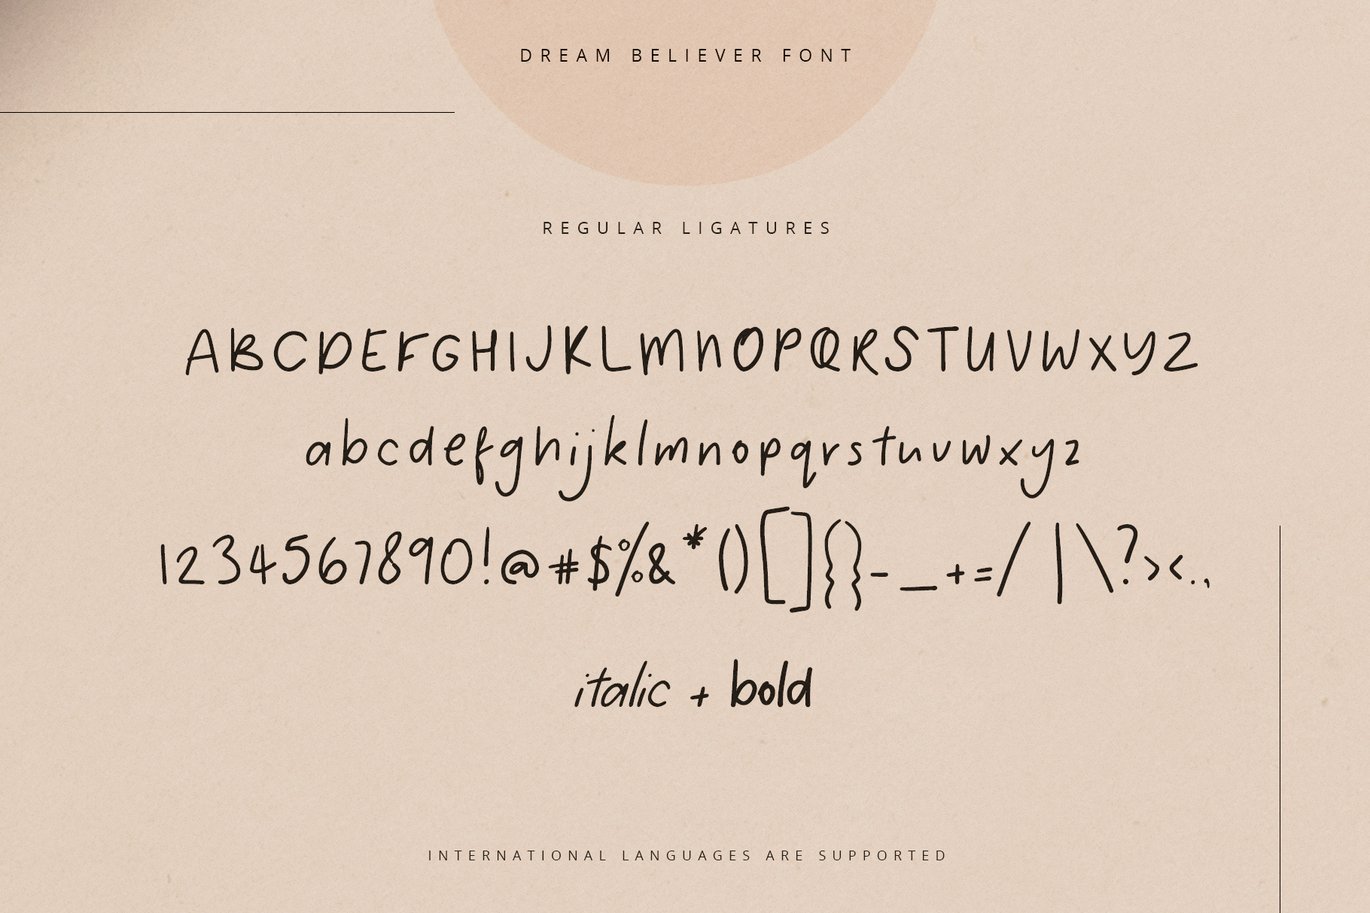 DREAM BELIEVER FONT
REGULAR LIGATURES
ABCDEFGHIJKLMNOPQRSTUVWXYZ
abcdefghijklmnopqrstuvwxyz
1234567890!@#$%&*()[]{}-_+=/|\?><.,
italic + bold
INTERNATIONAL LANGUAGES ARE SUPPORTED